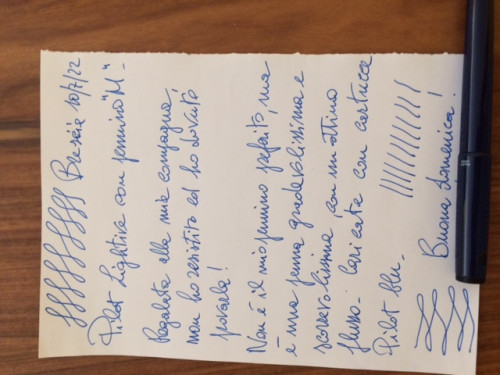 Brescia 10/7/22
Pilot Lightive con pennino "M"-
Regalata alla mia compagna,
non ho resistito ed ho dovuto
provarla!
Non è il mio pennino preferito, ma
è una penna gradevolissima e
scorrevolissima, con un ottimo
flusso- Caricata con cartucce
Pilot blu-
Buona domenica!